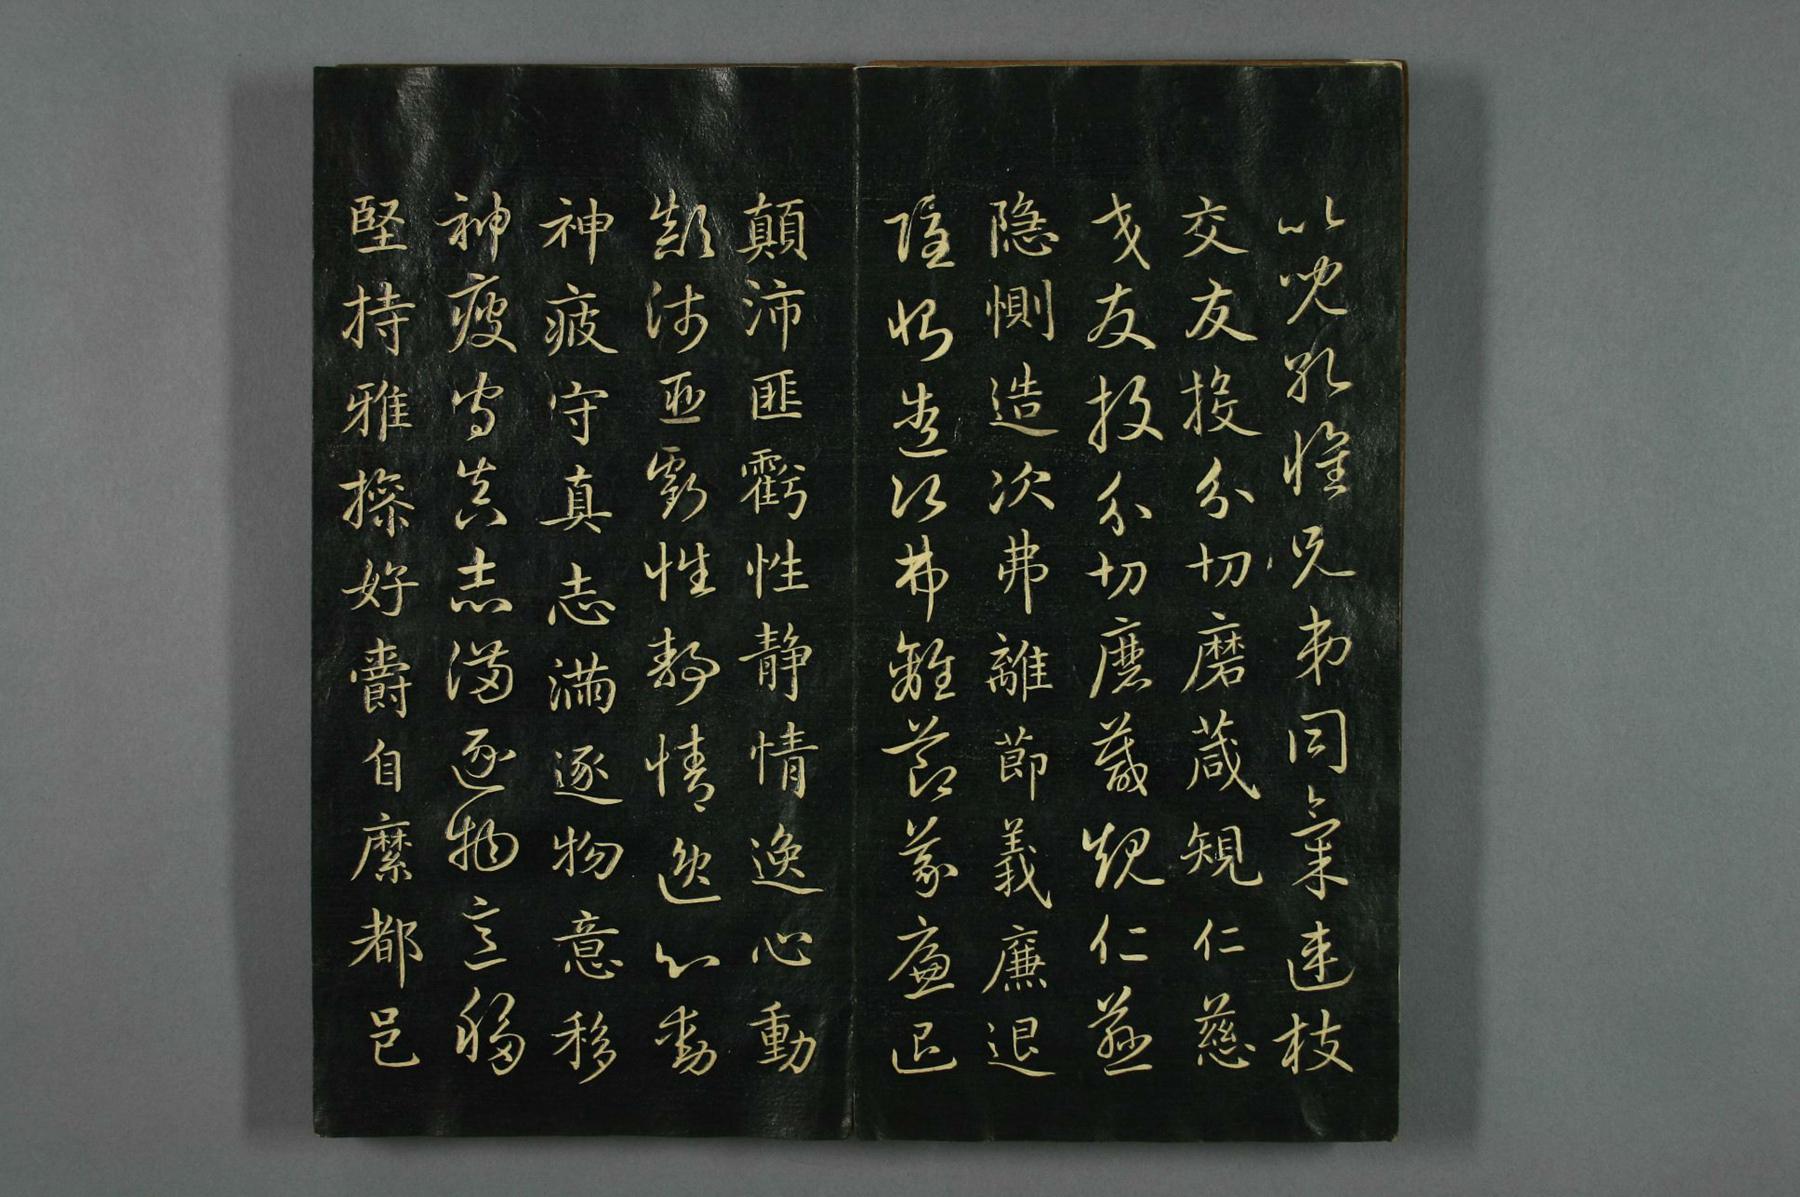 比兒孔懷兄弟同氣連枝
交友投分切磨箴規仁慈
交友投分切磨箴規仁慈
隐惻造次弗離節義廉退
隐惻造次弗離節義廉退
顛沛匪虧性静情逸心動
顛沛匪虧性静情逸心動
神疲守真志滿逐物意移
神疲守真志滿逐物意移
堅持雅操好爵自縻都邑